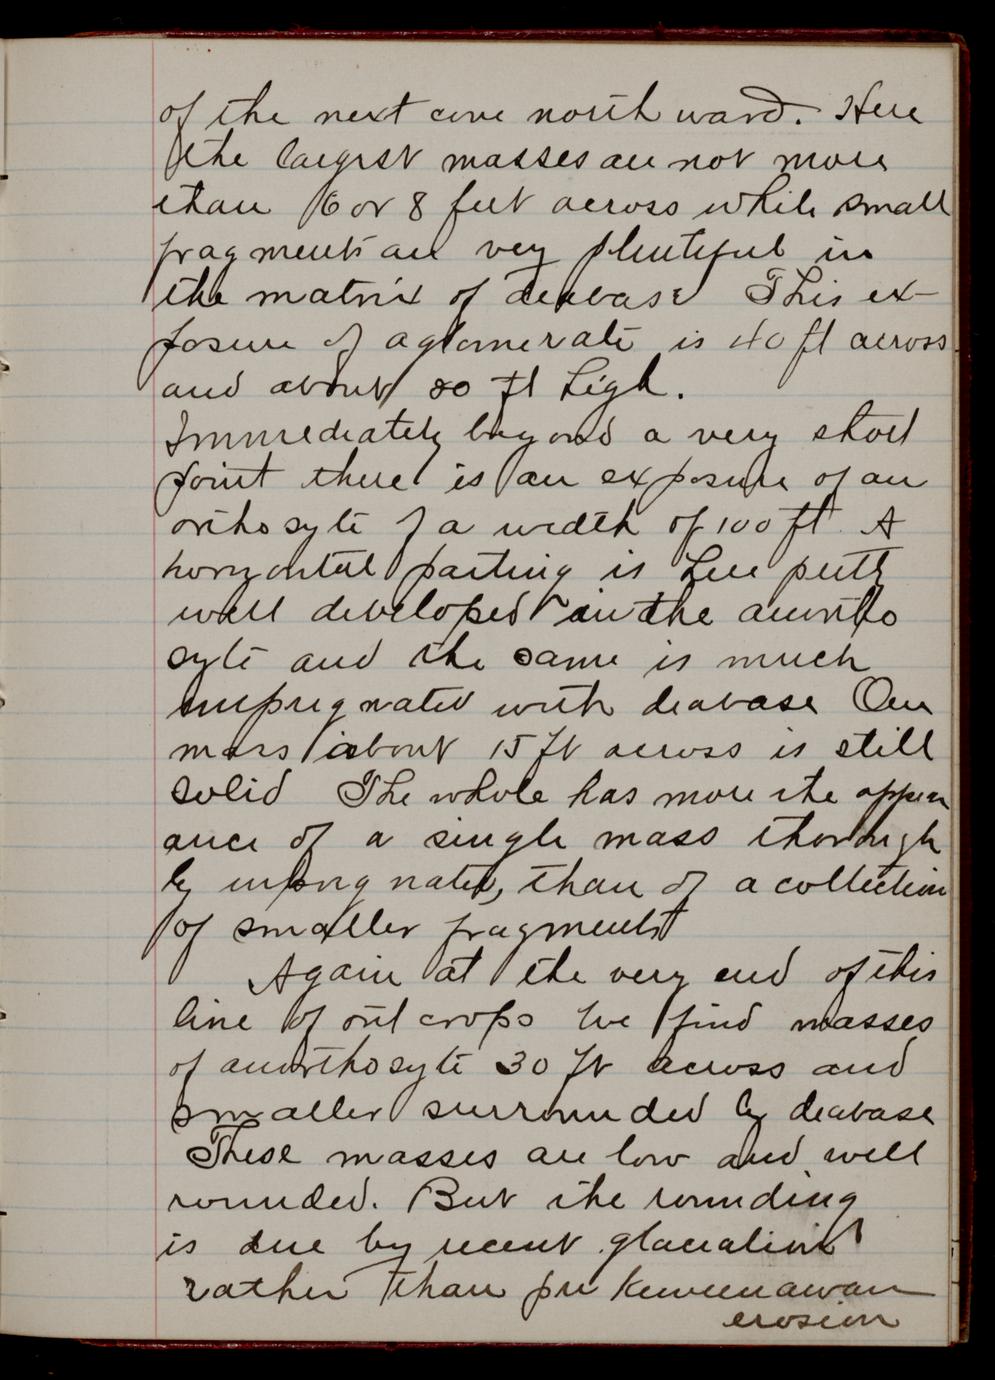 of the next cove north ward. Here
the largest masses are not more
than 6 or 8 feet across while small
fragments are very plentiful in
the matrix of deabase This ex-
posure of aglomerate is 40 ft across
and about 80 ft high.
Immediately beyond a very short
point there is an exposure of an
orthosyte of a width of 100 ft. A
horizontal parting is here pretty
well developed in the anortho
syte and the same is much
impregnated with deabase One
mass about 15 ft across is still
solid The whole has more the appear
ance of a single mass thorough
ly impregnated, than of a collection
of smaller fragments
Again at the very end of this
line of out crops we find masses
of anorthosyte 30 ft across and
smaller surrounded by deabase
These masses are low and well
rounded. But the rounding
is due by recent glaciation
rather than pre Keweenawan
erosion